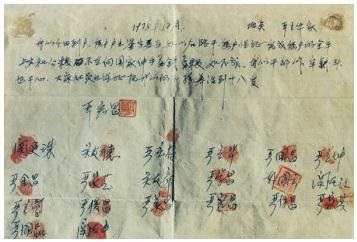 1978.12月 地点 严立华家
我们分田到户,每户户主签字盖章,如以后能干,每户保证完成每户的全年
上交和公粮,不在向国家伸手要钱要粮,如不成,我们干部作牢刹头
也干心,大家社员也保证把我们的小孩养活到十八岁
严宏昌
关廷珠 严立华 严国昌 严立坤
严金昌 严家芝 关友章 严学昌 韩国云 关友江
严立学 严俊昌 严美昌 严宏昌 严付昌 严家其
严国品 关友申